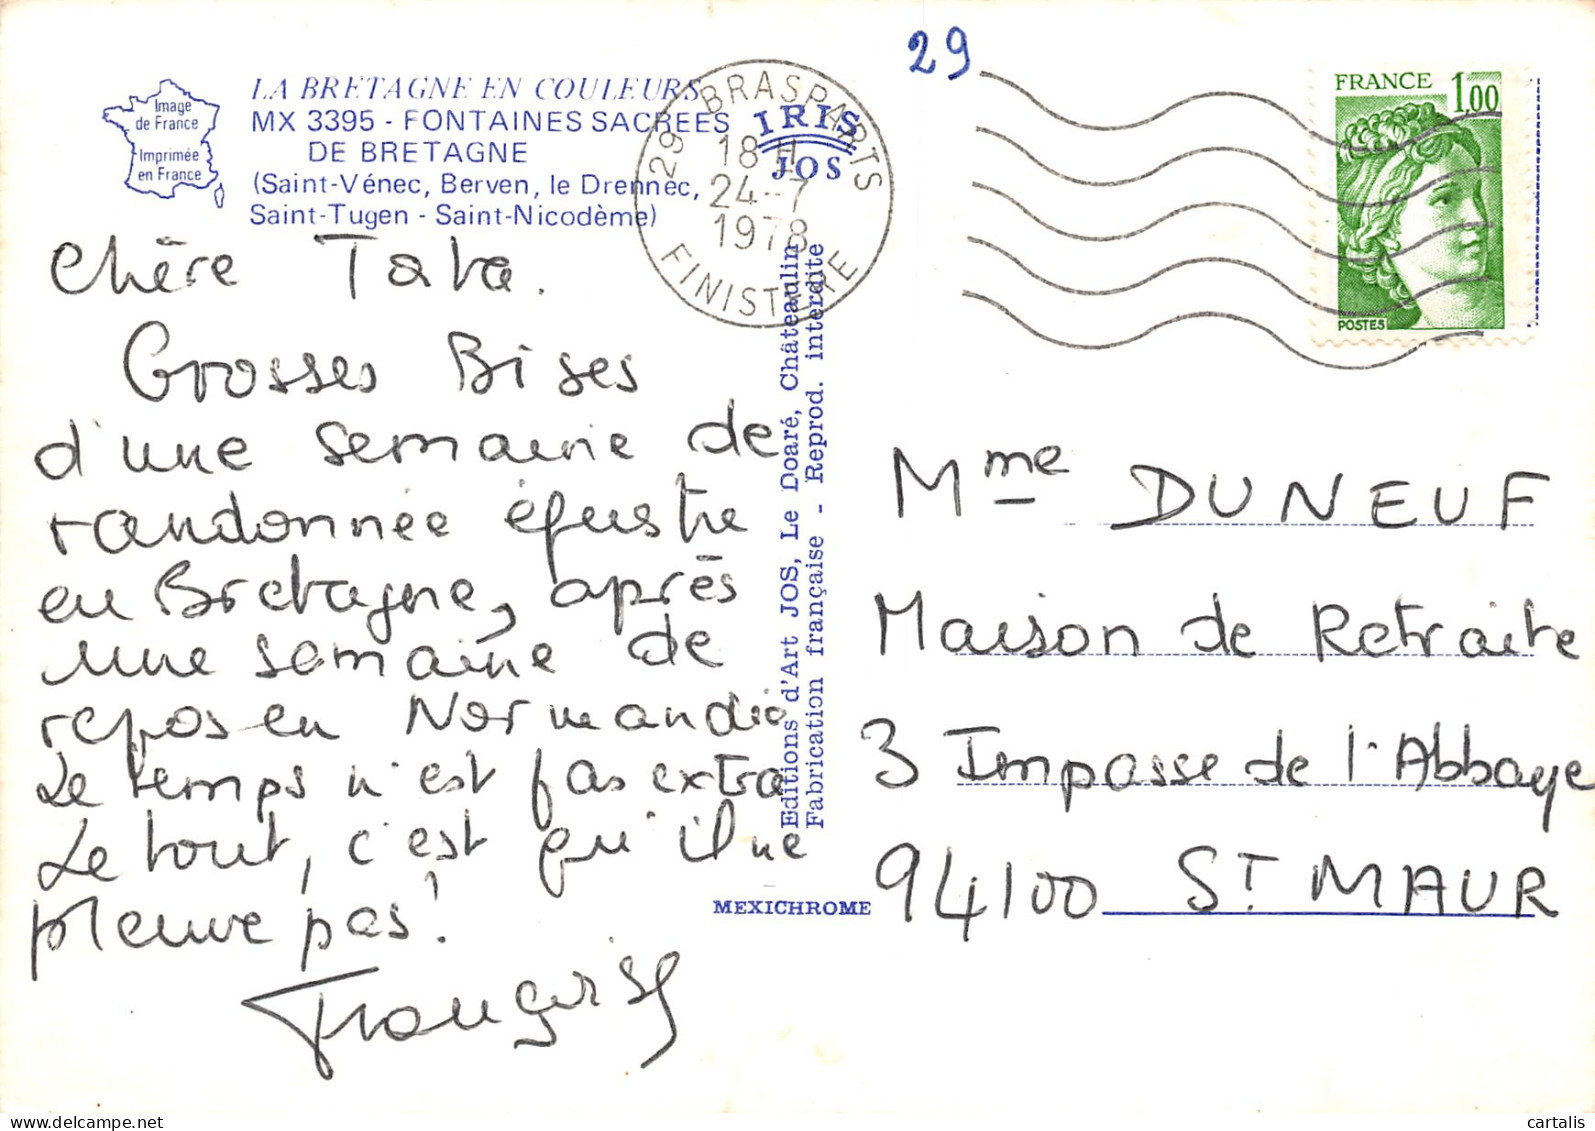 29
Image
de France
Imprimée
en France
LA BRETAGNE EN COULEURS
MX 3395 - FONTAINES SACREES
DE BRETAGNE
(Saint-Vénec, Berven, le Drennec,
Saint-Tugen - Saint-Nicodème)
IRIS
JOS
29 BRASPARTS
18 H
24-7
1978
FINISTERE
FRANCE 1,00
POSTES
Chère Tata.
Grosses Bises
d'une semaine de
randonnée équestre
en Bretagne, après
une semaine de
repos en Normandie
Le temps n'est pas extra
Le tout, c'est qu'il ne
pleuve pas!
Françoise
Editions d'Art JOS, Le Doaré, Châteaulin
Fabrication française - Reprod. interdite
MEXICHROME
Mme DUNEUF
Maison de Retraite
3 Impasse de l'Abbaye
94100 ST MAUR
cartalis